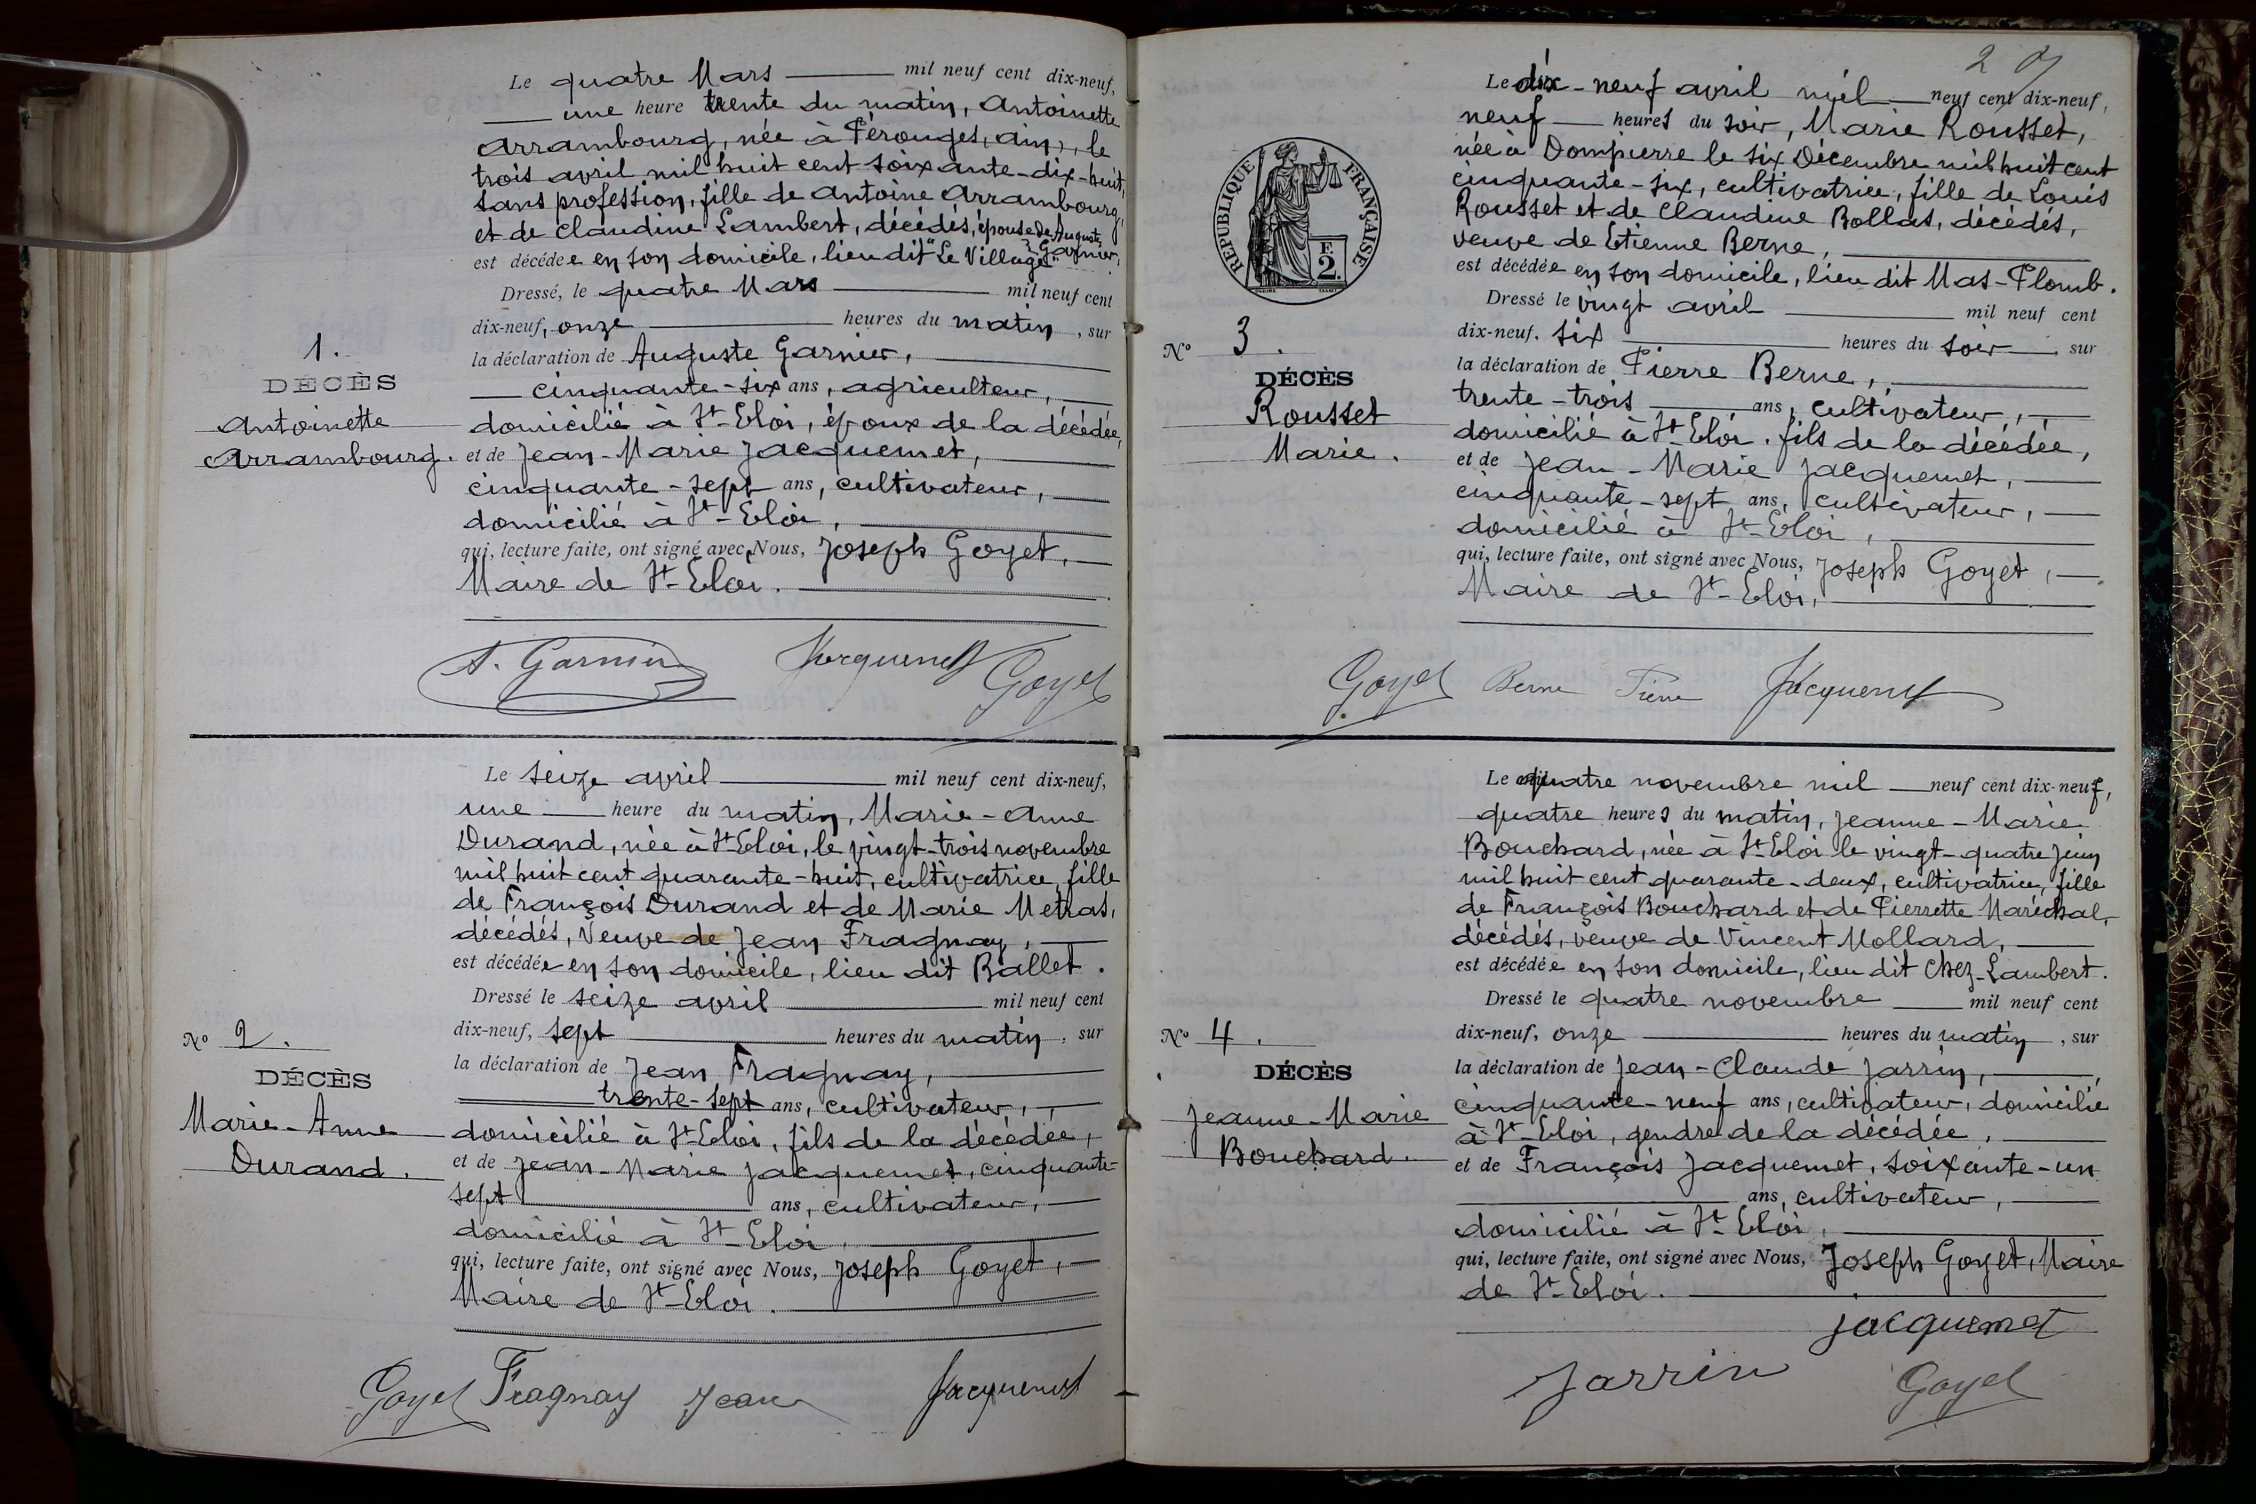 Le quatre Mars mil neuf cent dix-neuf,
une heure trente du matin, Antoinette
Arrambourg, née à Pérouges, (Ain), le
trois avril mil huit cent soixante-dix-huit,
sans profession, fille de Antoine Arrambourg,
et de Claudine Lambert, décédés, épouse de Auguste
Garnier,
est décédée en son domicile, lieu dit "Le Village"
Dressé, le quatre Mars mil neuf cent
dix-neuf, onze heures du matin, sur
la déclaration de Auguste Garnier,
cinquante-six ans, agriculteur,
domicilié à St-Eloi, époux de la décédée,
et de Jean-Marie Jacquemet,
cinquante-sept ans, cultivateur,
domicilié à St-Eloi,
qui, lecture faite, ont signé avec Nous, Joseph Goyet,
Maire de St-Eloi.
1.
DÉCÈS
Antoinette
Arrambourg.
A. Garnier Jacquemet Goyet
Le seize avril mil neuf cent dix-neuf,
une heure du matin, Marie-Anne
Durand, née à St-Eloi, le vingt-trois novembre
mil huit cent quarante-huit, cultivatrice, fille
de François Durand et de Marie Metras,
décédés, Veuve de Jean Fragnay,
est décédée en son domicile, lieu dit Ballet.
Dressé le seize avril mil neuf cent
dix-neuf, sept heures du matin, sur
la déclaration de Jean Fragnay,
trente-sept ans, cultivateur,
domicilié à St-Eloi, fils de la décédée,
et de Jean-Marie Jacquemet, cinquante-
sept ans, cultivateur,
domicilié à St-Eloi,
qui, lecture faite, ont signé avec Nous, Joseph Goyet,
Maire de St-Eloi.
No 2.
DÉCÈS
Marie-Anne
Durand.
Goyet Fragnay Jean Jacquemet
2
Le dix-neuf avril mil neuf cent dix-neuf,
neuf heures du soir, Marie Rousset,
née à Dompierre le six Décembre mil huit cent
cinquante-six, cultivatrice, fille de Louis
Rousset et de Claudine Bollas, décédés,
veuve de Etienne Berne,
est décédée en son domicile, lieu dit Mas-Plomb.
Dressé le vingt avril mil neuf cent
dix-neuf. six heures du soir, sur
la déclaration de Pierre Berne,
trente-trois ans, cultivateur,
domicilié à St-Eloi, fils de la décédée,
et de Jean-Marie Jacquemet,
cinquante-sept ans, cultivateur,
domicilié à St-Eloi,
qui, lecture faite, ont signé avec Nous, Joseph Goyet,
Maire de St-Eloi,
RÉPUBLIQUE FRANÇAISE
F.
2.
No 3.
DÉCÈS
Rousset
Marie.
Goyet Berne Pierre Jacquemet
Le quatre novembre mil neuf cent dix-neuf,
quatre heures du matin, Jeanne-Marie
Bouchard, née à St-Eloi le vingt-quatre Juin
mil huit cent quarante-deux, cultivatrice, fille
de François Bouchard et de Pierrette Maréchal,
décédés, veuve de Vincent Mollard,
est décédée en son domicile, lieu dit Chez-Lambert.
Dressé le quatre novembre mil neuf cent
dix-neuf, onze heures du matin, sur
la déclaration de Jean-Claude Jarrin,
cinquante-neuf ans, cultivateur, domicilié
à St-Eloi, gendre de la décédée,
et de François Jacquemet, soixante-un
ans, cultivateur,
domicilié à St-Eloi,
qui, lecture faite, ont signé avec Nous, Joseph Goyet, Maire
de St-Eloi.
No 4.
DÉCÈS
Jeanne-Marie
Bouchard.
Jacquemet
Jarrin Goyet